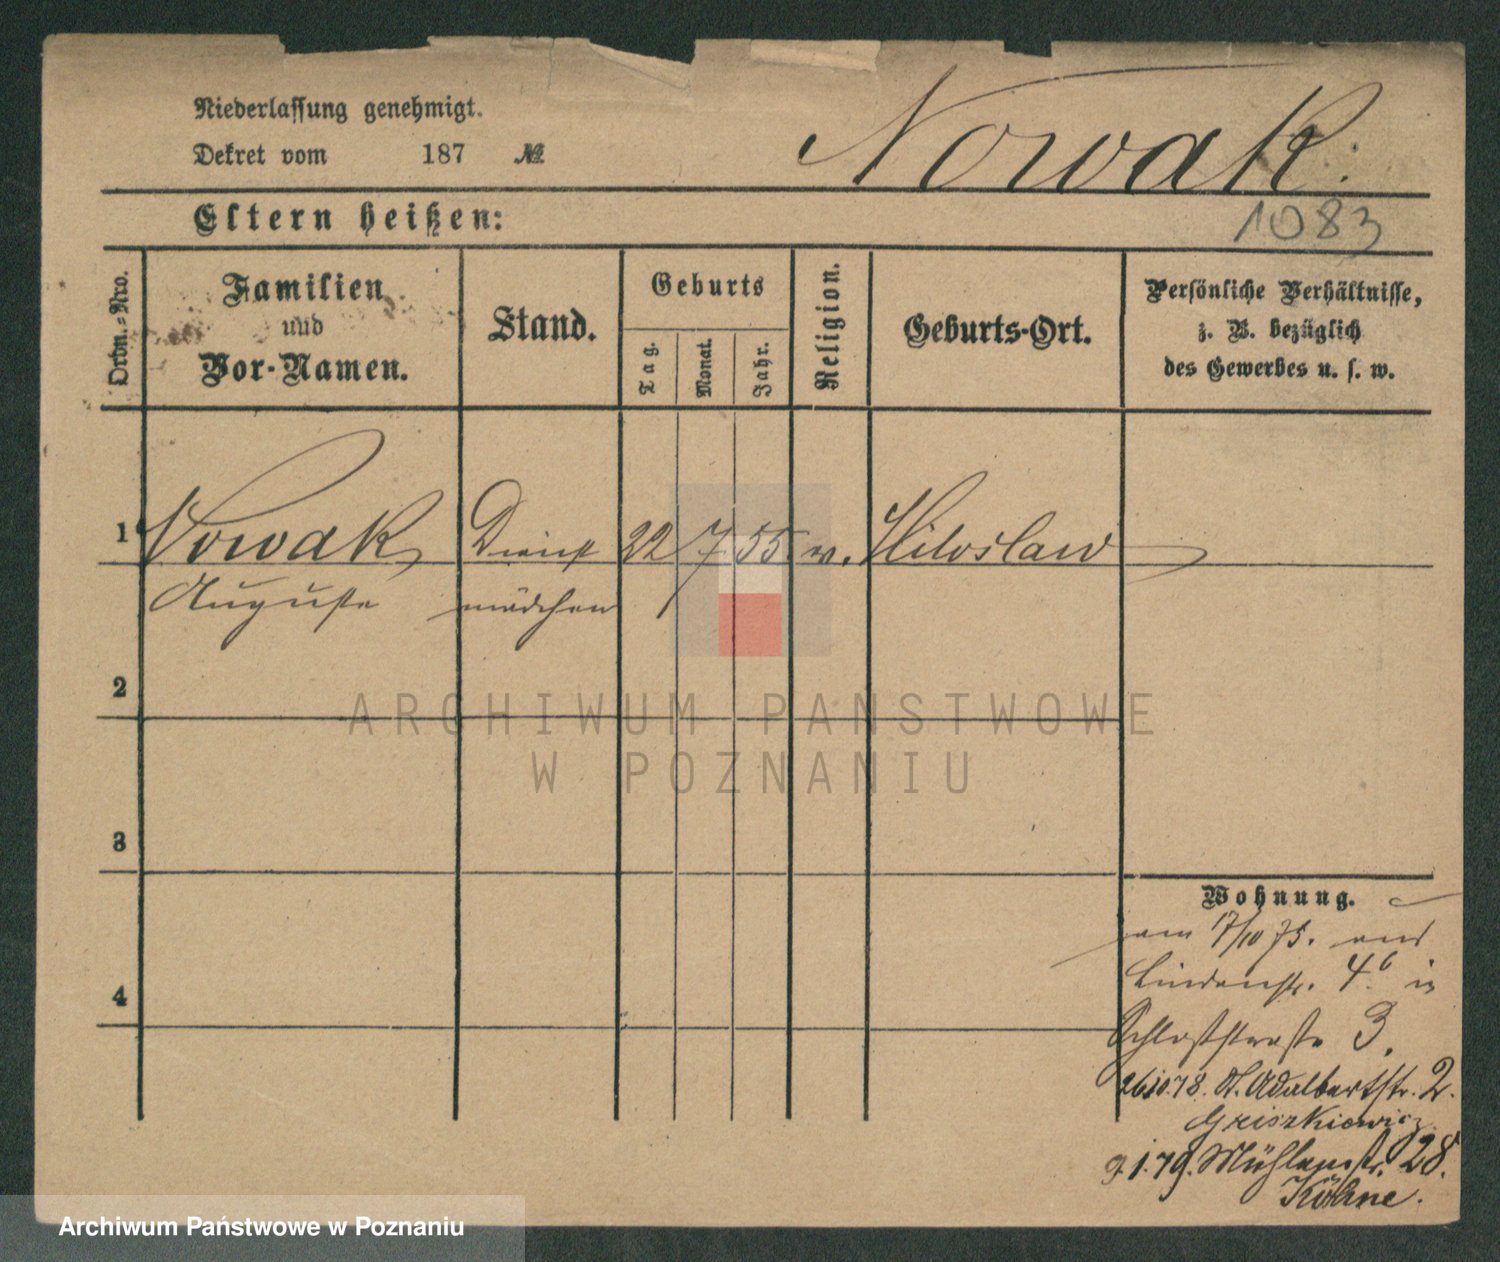 Niederlassung genehmigt.
Dekret vom 187 №
Nowak.
Eltern heißen:
1083
Ordn.-Nro.
Familien und Vor-Namen.
Stand.
Geburts
Tag.
Monat.
Jahr.
Religion.
Geburts-Ort.
Persönliche Verhältnisse,
z. B. bezüglich
des Gewerbes u. s. w.
1 Nowak Dienst 22 7 55. Miloslaw
Auguste mädchen
2
3
4
Wohnung.
am 17/10 75. aus
Lindenstr. 4.b in
Schloßstraße 3.
26.10.78. St. Adalbertstr. 2.
Griszkiewicz.
9.1.79. Mühlenstr. 28.
Köhne.
ARCHIWUM PAŃSTWOWE
W POZNANIU
Archiwum Państwowe w Poznaniu